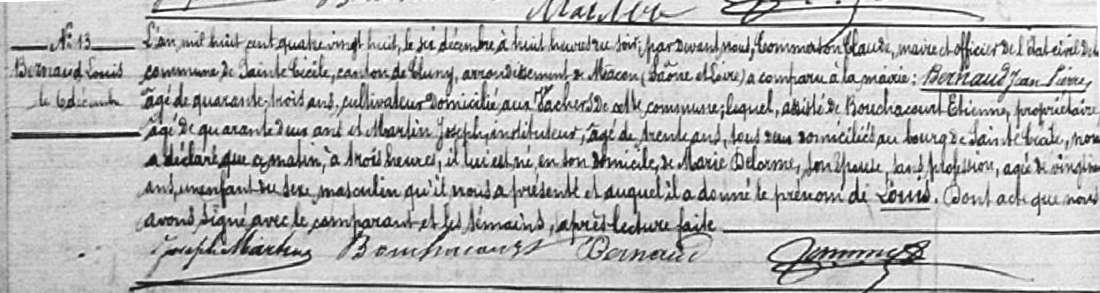 N° 13
Bernaud Louis
le 6 décembre
L'an, mil huit cent quatre vingt huit, le six décembre, à huit heures du soir; par devant nous, Commerton Claude, maire et officier de l'état civil de la
commune de Sainte Cécile, canton de Cluny, arrondissement de Mâcon (Saône et Loire) a comparu à la mairie: Bernaud Jean Pierre,
âgé de quarante-trois ans, cultivateur domicilié aux Vachers de cette commune; lequel, assisté de Bouchacourt Etienne, propriétaire,
âgé de quarante deux ans et Martin Joseph, instituteur, âgé de trente ans, tous deux domiciliés au bourg de Sainte Cécile, nous
a déclaré que ce matin, à trois heures, il lui est né en son domicile, de Marie Delorme, son épouse, sans profession, âgé de
ans, un enfant du sexe masculin qu'il nous a présenté et auquel il a donné le prénom de Louis. Dont acte que nous
avons signé avec le comparant et les témoins, après lecture faite
Joseph Martin Bouchacourt Bernaud